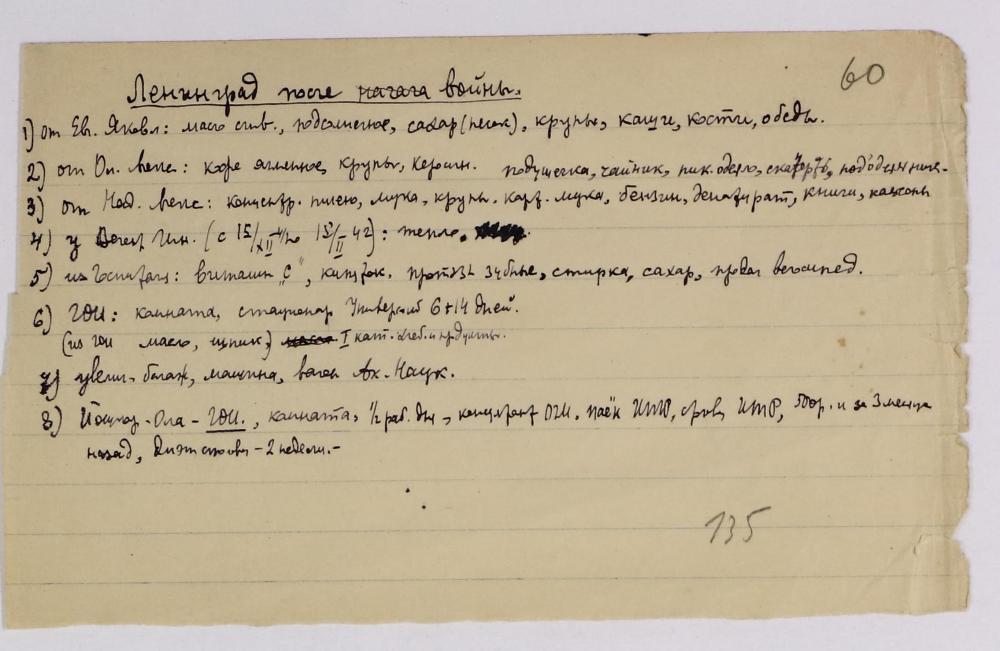 60
Ленинград после начала войны.
1) от Евг. Яковл: масло слив., подсолнечное, сахар (песок), крупы, каши, кости, обеды.
2) от Ол. : кофе ячменное, крупы, керосин. подушечка, чайник, пик. одеяло, скатерть, пододеяльник.
3) от Над. : концентр. пшено, мука, крупы. карт. мука, бензин, денатурат, книги, кальсоны
4) у Ин. (с 15/XII по 15/II 42): тепло.
5) из : витамин "С", кипяток. протезы зубные, стирка, сахар, велосипед.
6) ГОИ: комната, стационар 6+14 дней.
(из гои масло, ) I кат. хлеб. и продукты.
7) увелич. багаж, машина, вагон Ак. Наук.
8) Йошкар-Ола - ГОИ., комната, 1/2 раб. дн, концентрат ОГИ. паёк ИТР, дрова, ИТР, и за 3 месяца
назад, - 2 недели.-
135